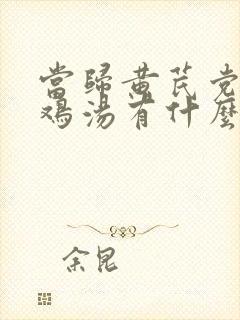 當歸黃芪党
鸡湯有什麼
余昆